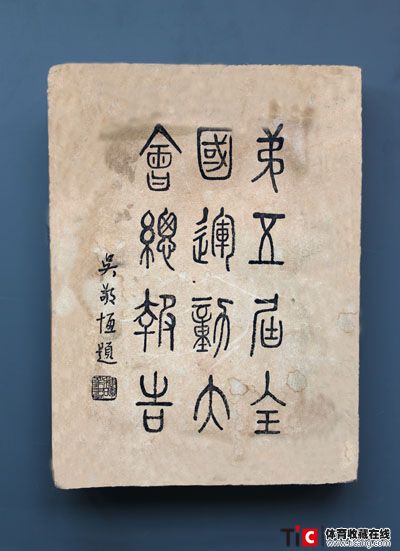 弟五屆全
國運動大
會總報告
吳敬恆題
TiC 体育收藏在线
www.ticang.com